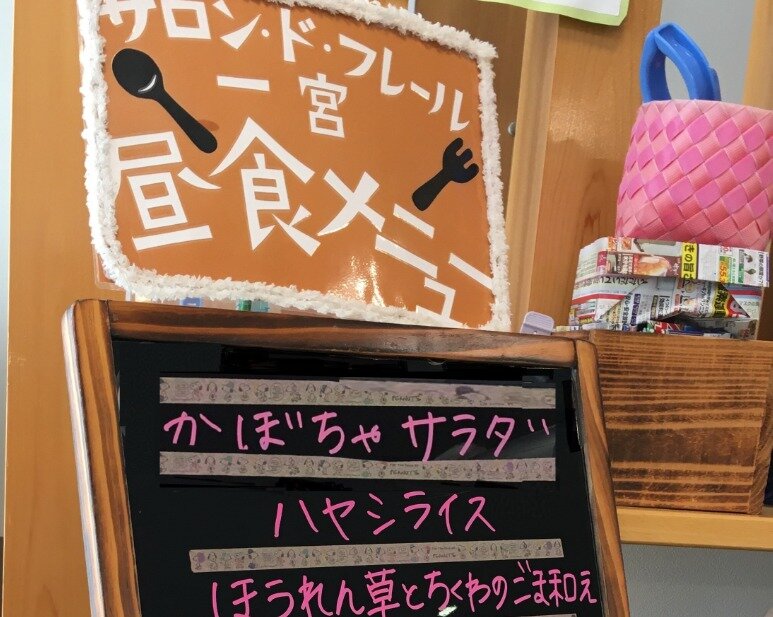 サロン・ド・フレール
一宮
昼食メニュー
かぼちゃサラダ
ハヤシライス
ほうれん草とちくわのごま和え